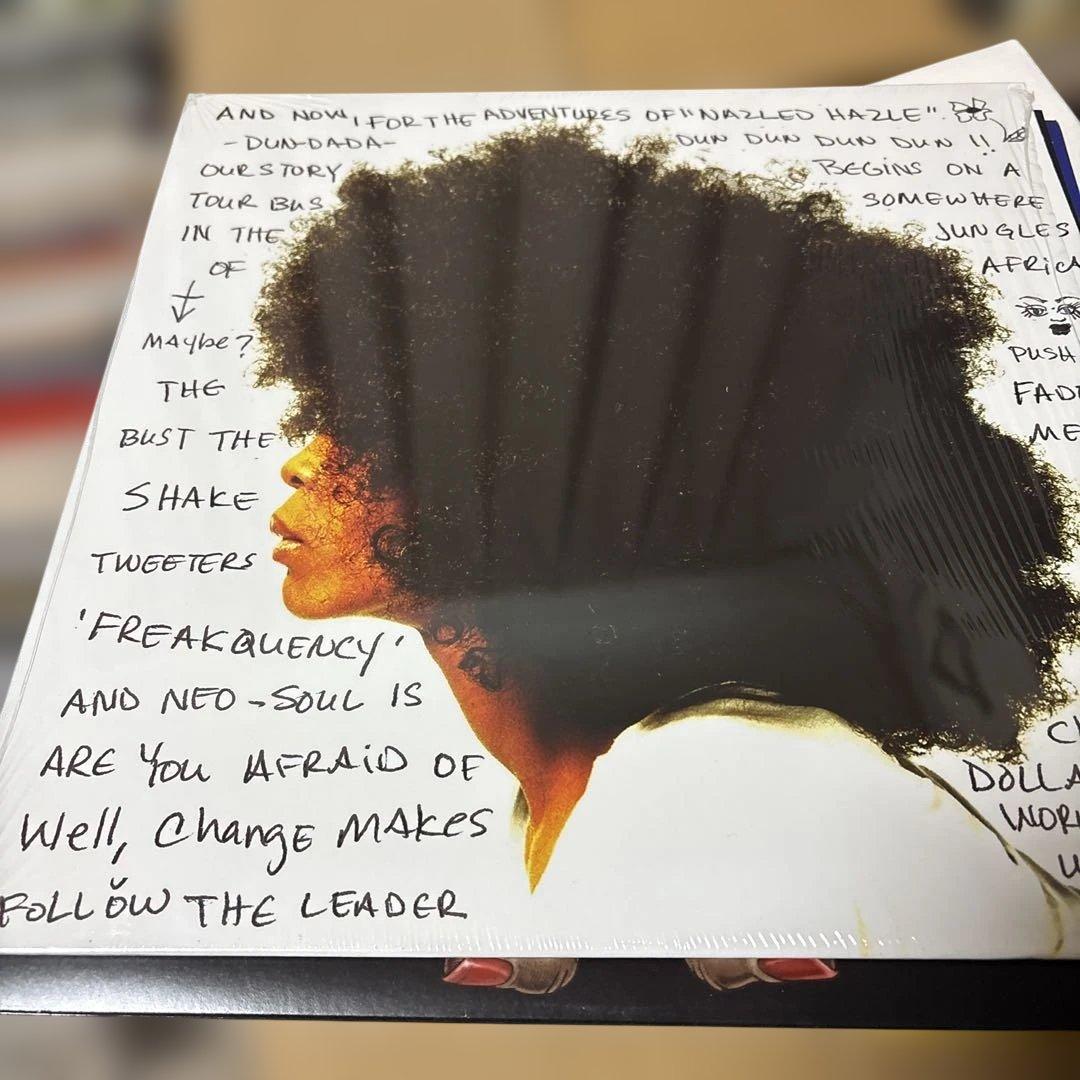 AND NOW, FOR THE ADVENTURES OF "NAZLED HAZLE".
-DUN-DADA- DUN DUN DUN DUN !!
OUR STORY BEGINS ON A
TOUR BUS SOMEWHERE
IN THE JUNGLES
OF AFRICA
MAYbe? PUSH
THE FADE
BUST THE ME
SHAKE
TWEETERS
'FREAKQUENCY'
AND NEO-SOUL IS
ARE YOU AFRAID OF
Well, Change MAKES DOLLA
FOLLOW THE LEADER